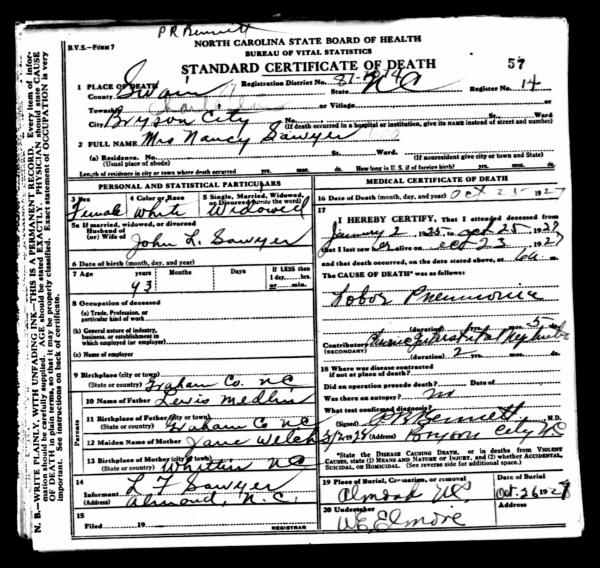 P R Bennett
B.V.S.—FORM 7
NORTH CAROLINA STATE BOARD OF HEALTH
BUREAU OF VITAL STATISTICS
STANDARD CERTIFICATE OF DEATH
57
1 PLACE OF DEATH
Registration District No. 87-
County Swain State NC Register No. 14
Township or Village or
City Bryson City No. St. Ward
(If death occurred in a hospital or institution, give its NAME instead of street and number)
2 FULL NAME Mrs Nancy Sawyer
(a) Residence. No. St. Ward.
(Usual place of abode) (If nonresident give city or town and State)
Length of residence in city or town where death occurred yrs. mos. ds. How long in U. S. if of foreign birth? yrs. mos. ds.
PERSONAL AND STATISTICAL PARTICULARS
3 Sex 4 Color or Race 5 Single, Married, Widowed, or Divorced (write the word)
Female White Widowed
5a If married, widowed, or divorced
Husband of
(or) Wife of John L. Sawyer
6 Date of birth (month, day, and year)
7 Age years Months Days If LESS than
1 day, hrs.
or min.
93
8 Occupation of deceased
(a) Trade, Profession, or
particular kind of work
(b) General nature of industry,
business, or establishment in
which employed (or employer)
(c) Name of employer
9 Birthplace (city or town)
(State or country) Graham Co. NC.
Parents
10 Name of Father Lewis Medlin
11 Birthplace of Father (city or town)
(State or country) Graham Co NC
12 Maiden Name of Mother Jane Welch
13 Birthplace of Mother (city or town)
(State or country) Whittier NC
14 Informant L F Sawyer
(Address) Almond, N.C.
15
Filed 19
REGISTRAR
MEDICAL CERTIFICATE OF DEATH
16 Date of Death (month, day, and year) Oct 25 1927
17
I HEREBY CERTIFY, That I attended deceased from
January 2 1925, to Oct 25 1927
that I last saw her alive on Oct 23 1927
and that death occurred, on the date stated above, at 6 a m.
The CAUSE OF DEATH* was as follows:
Lobar Pneumonia
(duration) yrs. mos. 5 ds.
Contributory Chronic Interstitial Nephritis
(SECONDARY)
(duration) 2 yrs. mos. ds.
18 Where was disease contracted
if not at place of death?
Did an operation precede death? Date of
Was there an autopsy? No
What test confirmed diagnosis?
(Signed) P R Bennett M.D.
3/2 1928 (Address) Bryson City NC
*State the DISEASE CAUSING DEATH, or in deaths from VIOLENT
CAUSES, state (1) MEANS AND NATURE OF INJURY, and (2) whether ACCIDENTAL,
SUICIDAL, or HOMICIDAL. (See reverse side for additional space.)
19 Place of Burial, Cremation, or removal Date of Burial
Almond NC Oct. 26 1927
20 Undertaker
W E Elmore
N. B.—WRITE PLAINLY, WITH UNFADING INK—THIS IS A PERMANENT RECORD. Every item of information should be carefully supplied. AGE should be stated EXACTLY. PHYSICIAN should state CAUSE OF DEATH in plain terms, so that it may be properly classified. Exact statement of OCCUPATION is very important. See instructions on back of certificate.